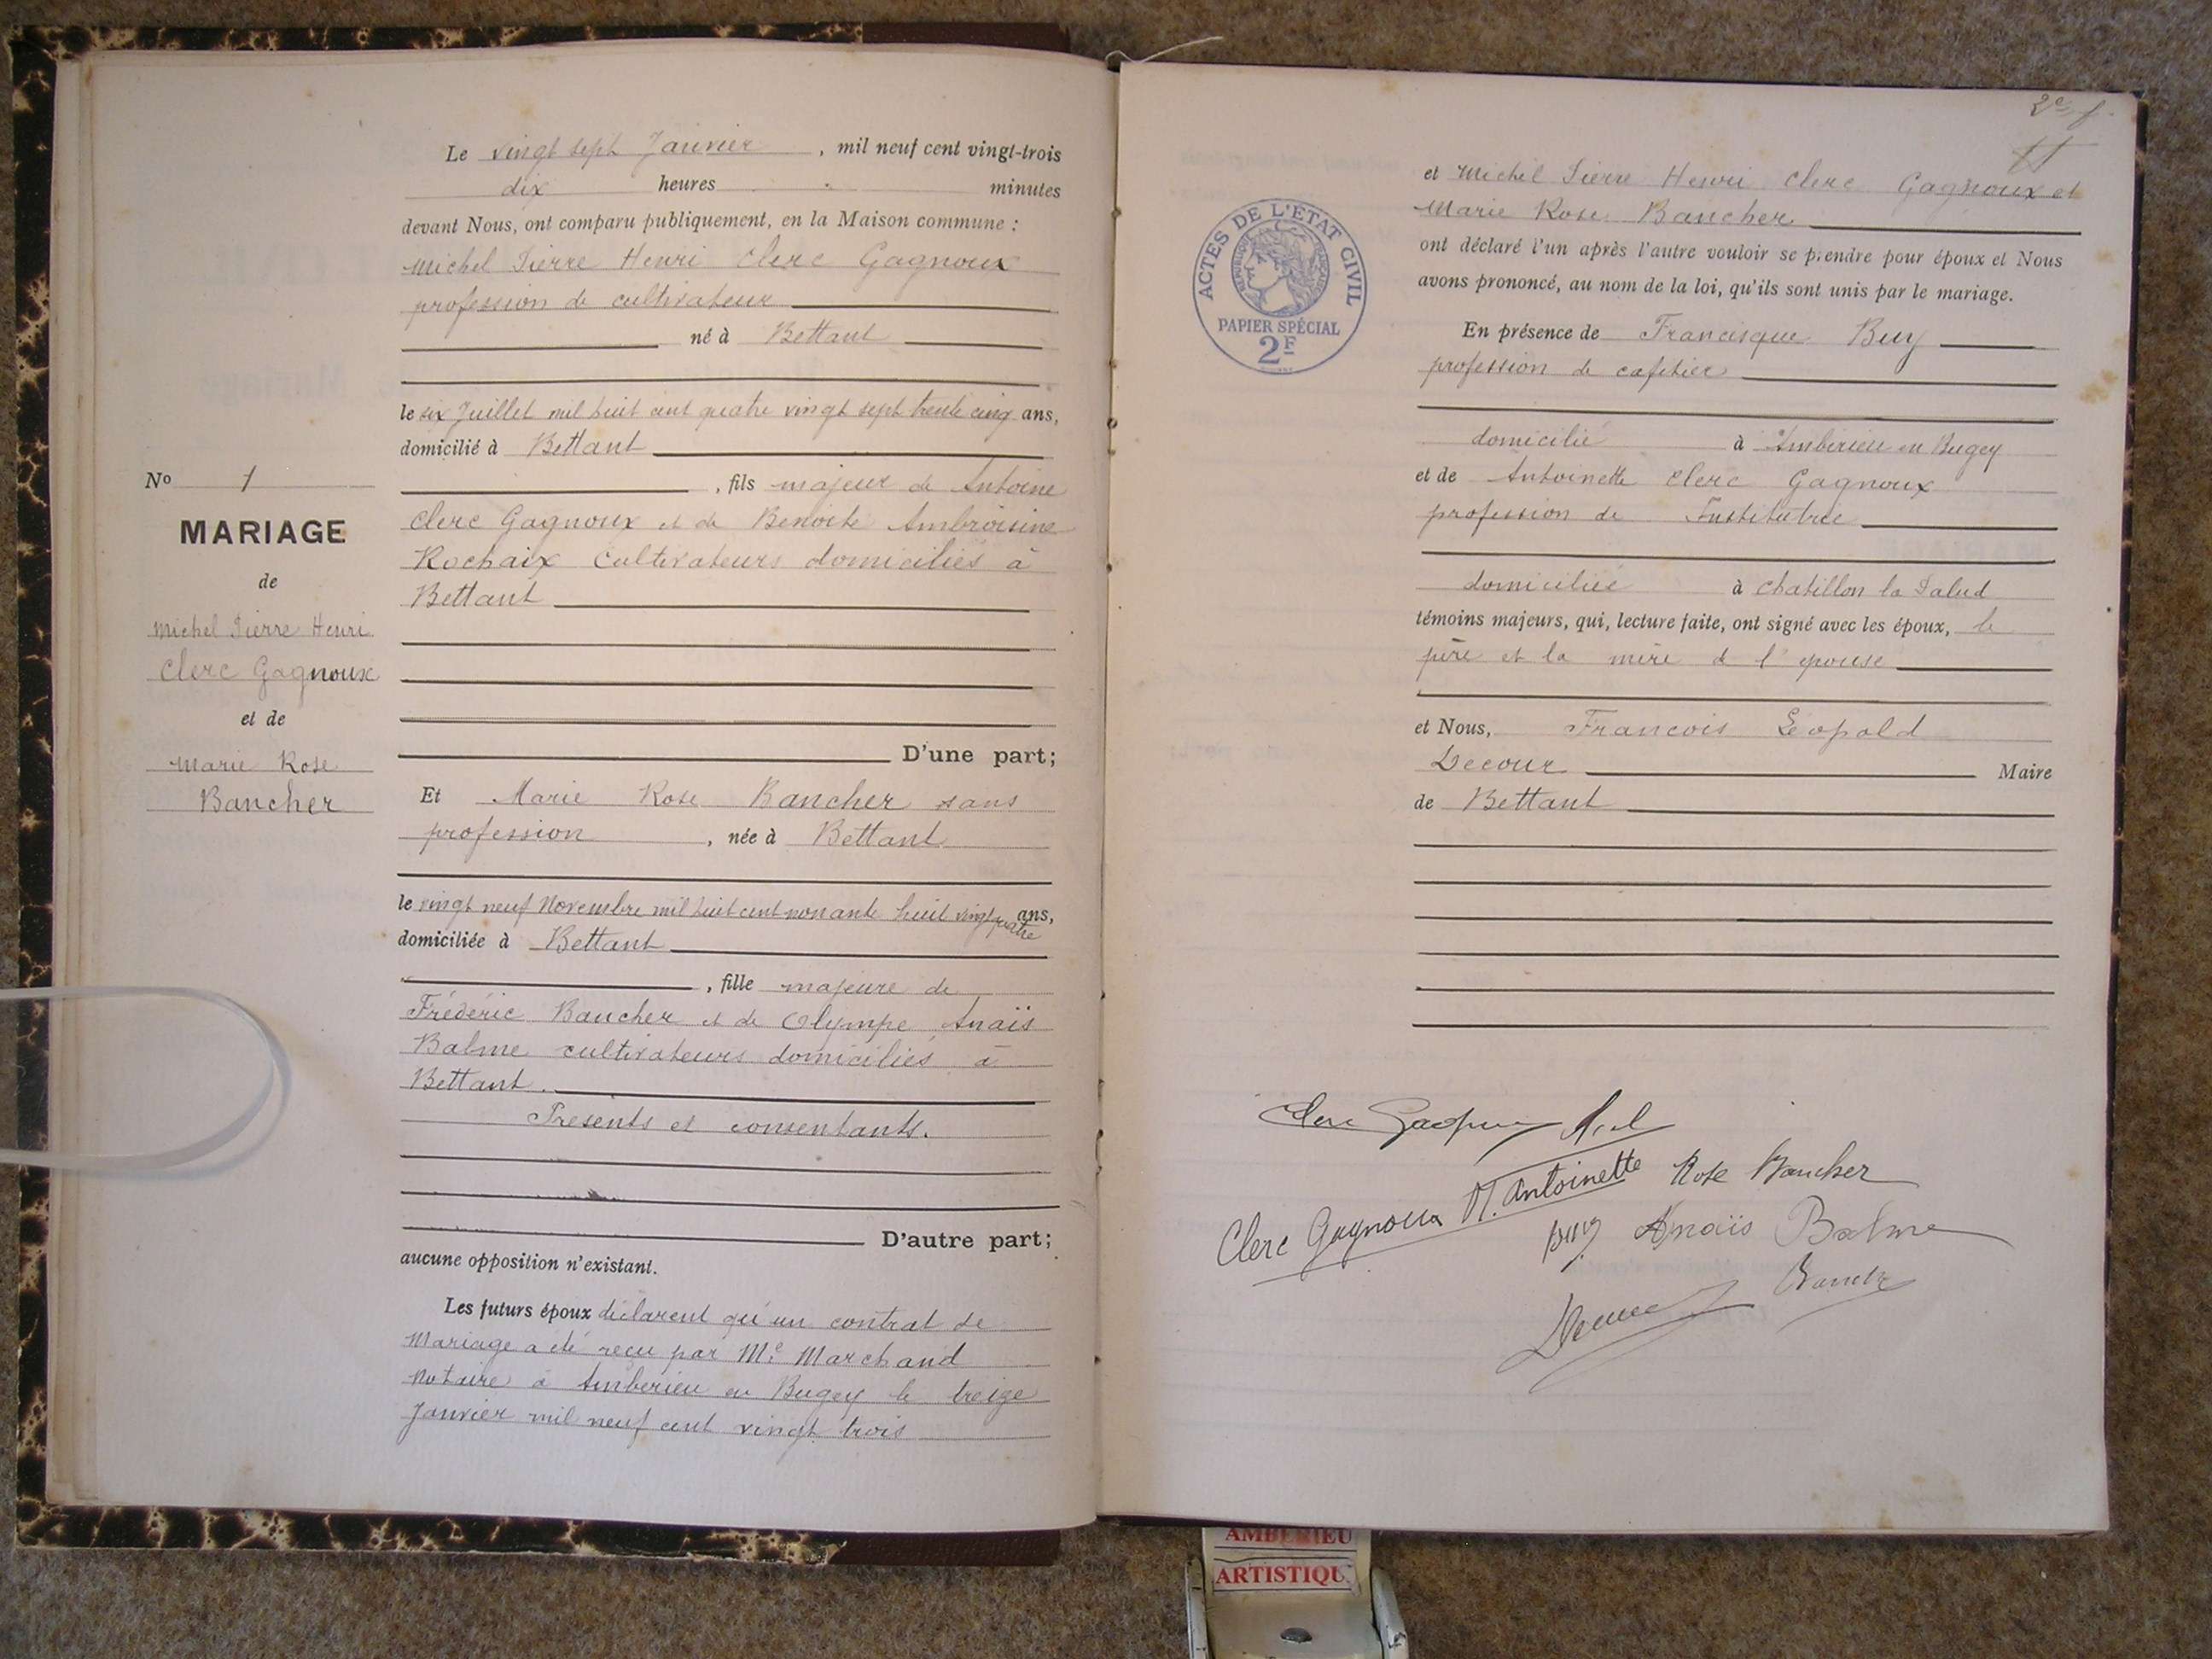 Le vingt sept Janvier , mil neuf cent vingt-trois
dix heures minutes
devant Nous, ont comparu publiquement, en la Maison commune :
Michel Pierre Henri Clerc Gagnoux
profession de cultivateur
né à Bettant
le six Juillet mil huit cent quatre vingt sept trente cinq ans,
domicilié à Bettant
, fils majeur de Antoine
Clerc Gagnoux et de Benoite Ambroisine
Rochaix Cultivateurs domiciliés à
Bettant
D'une part;
Et Marie Rose Bancher sans
profession , née à Bettant
le vingt neuf Novembre mil huit cent nonante huit vingt quatre ans,
domiciliée à Bettant
, fille majeure de
Frédéric Bancher et de Olympe Anaïs
Balme cultivateurs domiciliés à
Bettant.
Présents et consentants.
D'autre part;
aucune opposition n'existant.
Les futurs époux déclarent qu'un contrat de
Mariage a été reçu par Me Marchand
Notaire à Ambérieu en Bugey le treize
Janvier mil neuf cent vingt trois
No 1
MARIAGE
de
Michel Pierre Henri
Clerc Gagnoux
et de
Marie Rose
Bancher
2e f.
et Michel Pierre Henri Clerc Gagnoux et
Marie Rose Bancher
ont déclaré l'un après l'autre vouloir se prendre pour époux et Nous
avons prononcé, au nom de la loi, qu'ils sont unis par le mariage.
En présence de Francisque Buy
profession de cafetier
domicilié à Ambérieu en Bugey
et de Antoinette Clerc Gagnoux
profession de Institutrice
domiciliée à Chatillon la Palud
témoins majeurs, qui, lecture faite, ont signé avec les époux, le
père et la mère de l'épouse
et Nous, Francois Léopold
Decour Maire
de Bettant
ACTES DE L'ETAT CIVIL
REPUBLIQUE FRANÇAISE
PAPIER SPÉCIAL
2F
Clerc Gagnoux
Clerc Gagnoux M. Antoinette Rose Bancher
Buy Anaïs Balme
Decour Bancher
AMBERIEU
ARTISTIQU